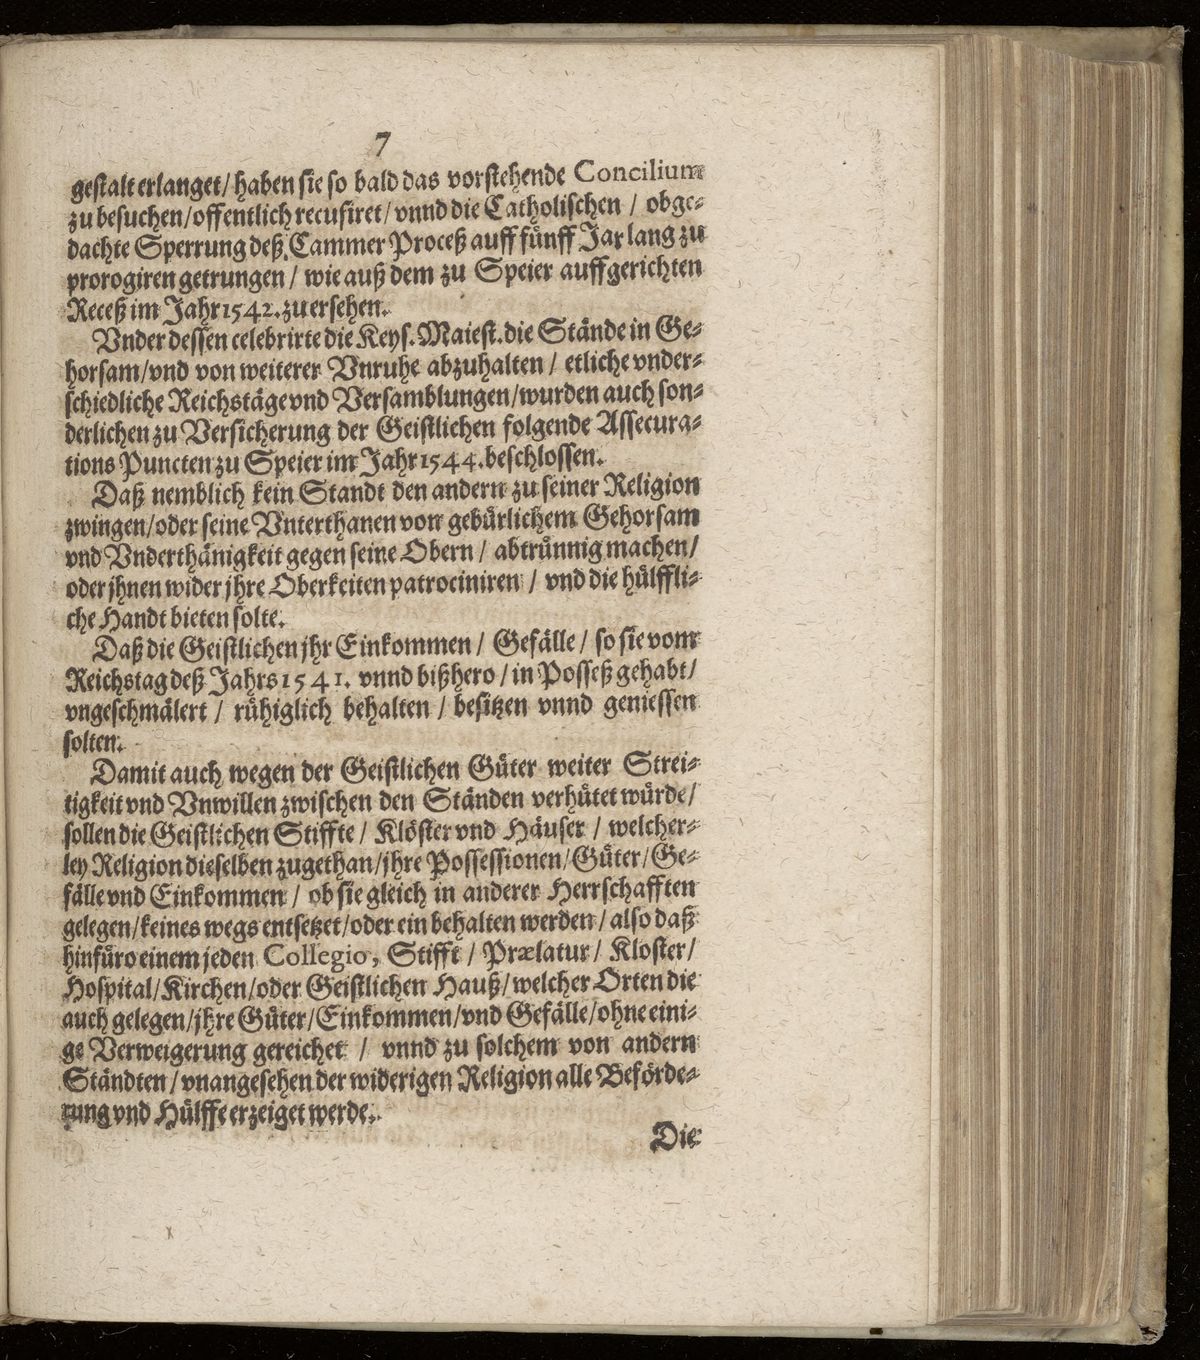 7
gestalt erlanget/ haben sie so bald das vorstehende Concilium
zu besuchen/offentlich recusiret/ vnnd die Catholischen / obge-
dachte Sperrung deß Cammer Proceß auff fünff Jar lang zu
prorogiren getrungen / wie auß dem zu Speier auffgerichten
Receß im Jahr 1542. zu ersehen.
Vnder dessen celebrirte die Keys. Maiest. die Stände in Ge-
horsam/vnd von weiterer Vnruhe abzuhalten / etliche vnder-
schiedliche Reichstäge vnd Versamblungen/wurden auch son-
derlichen zu Versicherung der Geistlichen folgende Assecura-
tions Puncten zu Speier im Jahr 1544. beschlossen.
Daß nemblich kein Standt den andern zu seiner Religion
zwingen/oder seine Vnterthanen von gebürlichem Gehorsam
vnd Vnderthänigkeit gegen seine Obern / abtrünnig machen/
oder jhnen wider jhre Oberkeiten patrociniren / vnd die hülffli-
che Handt bieten solte.
Daß die Geistlichen jhr Einkommen / Gefälle / so sie vom
Reichstag deß Jahrs 1541. vnnd bißhero / in Posseß gehabt/
vngeschmälert / rühiglich behalten / besitzen vnnd geniessen
solten.
Damit auch wegen der Geistlichen Güter weiter Strei-
tigkeit vnd Vnwillen zwischen den Ständen verhütet würde/
sollen die Geistlichen Stiffte / Klöster vnd Häuser / welcher-
ley Religion dieselben zugethan/jhre Possessionen/Güter/Ge-
fälle vnd Einkommen / ob sie gleich in anderer Herrschafften
gelegen/keines wegs entsetzet/oder ein behalten werden / also daß
hinfüro einem jeden Collegio, Stifft / Prælatur / Kloster/
Hospital/Kirchen/oder Geistlichen Hauß/welcher Orten die
auch gelegen/jhre Güter/Einkommen/vnd Gefälle/ohne eini-
ge Verweigerung gereichet / vnnd zu solchem von andern
Ständten / vnangesehen der widerigen Religion alle Beförde-
rung vnd Hülffe erzeiget werde.
Die